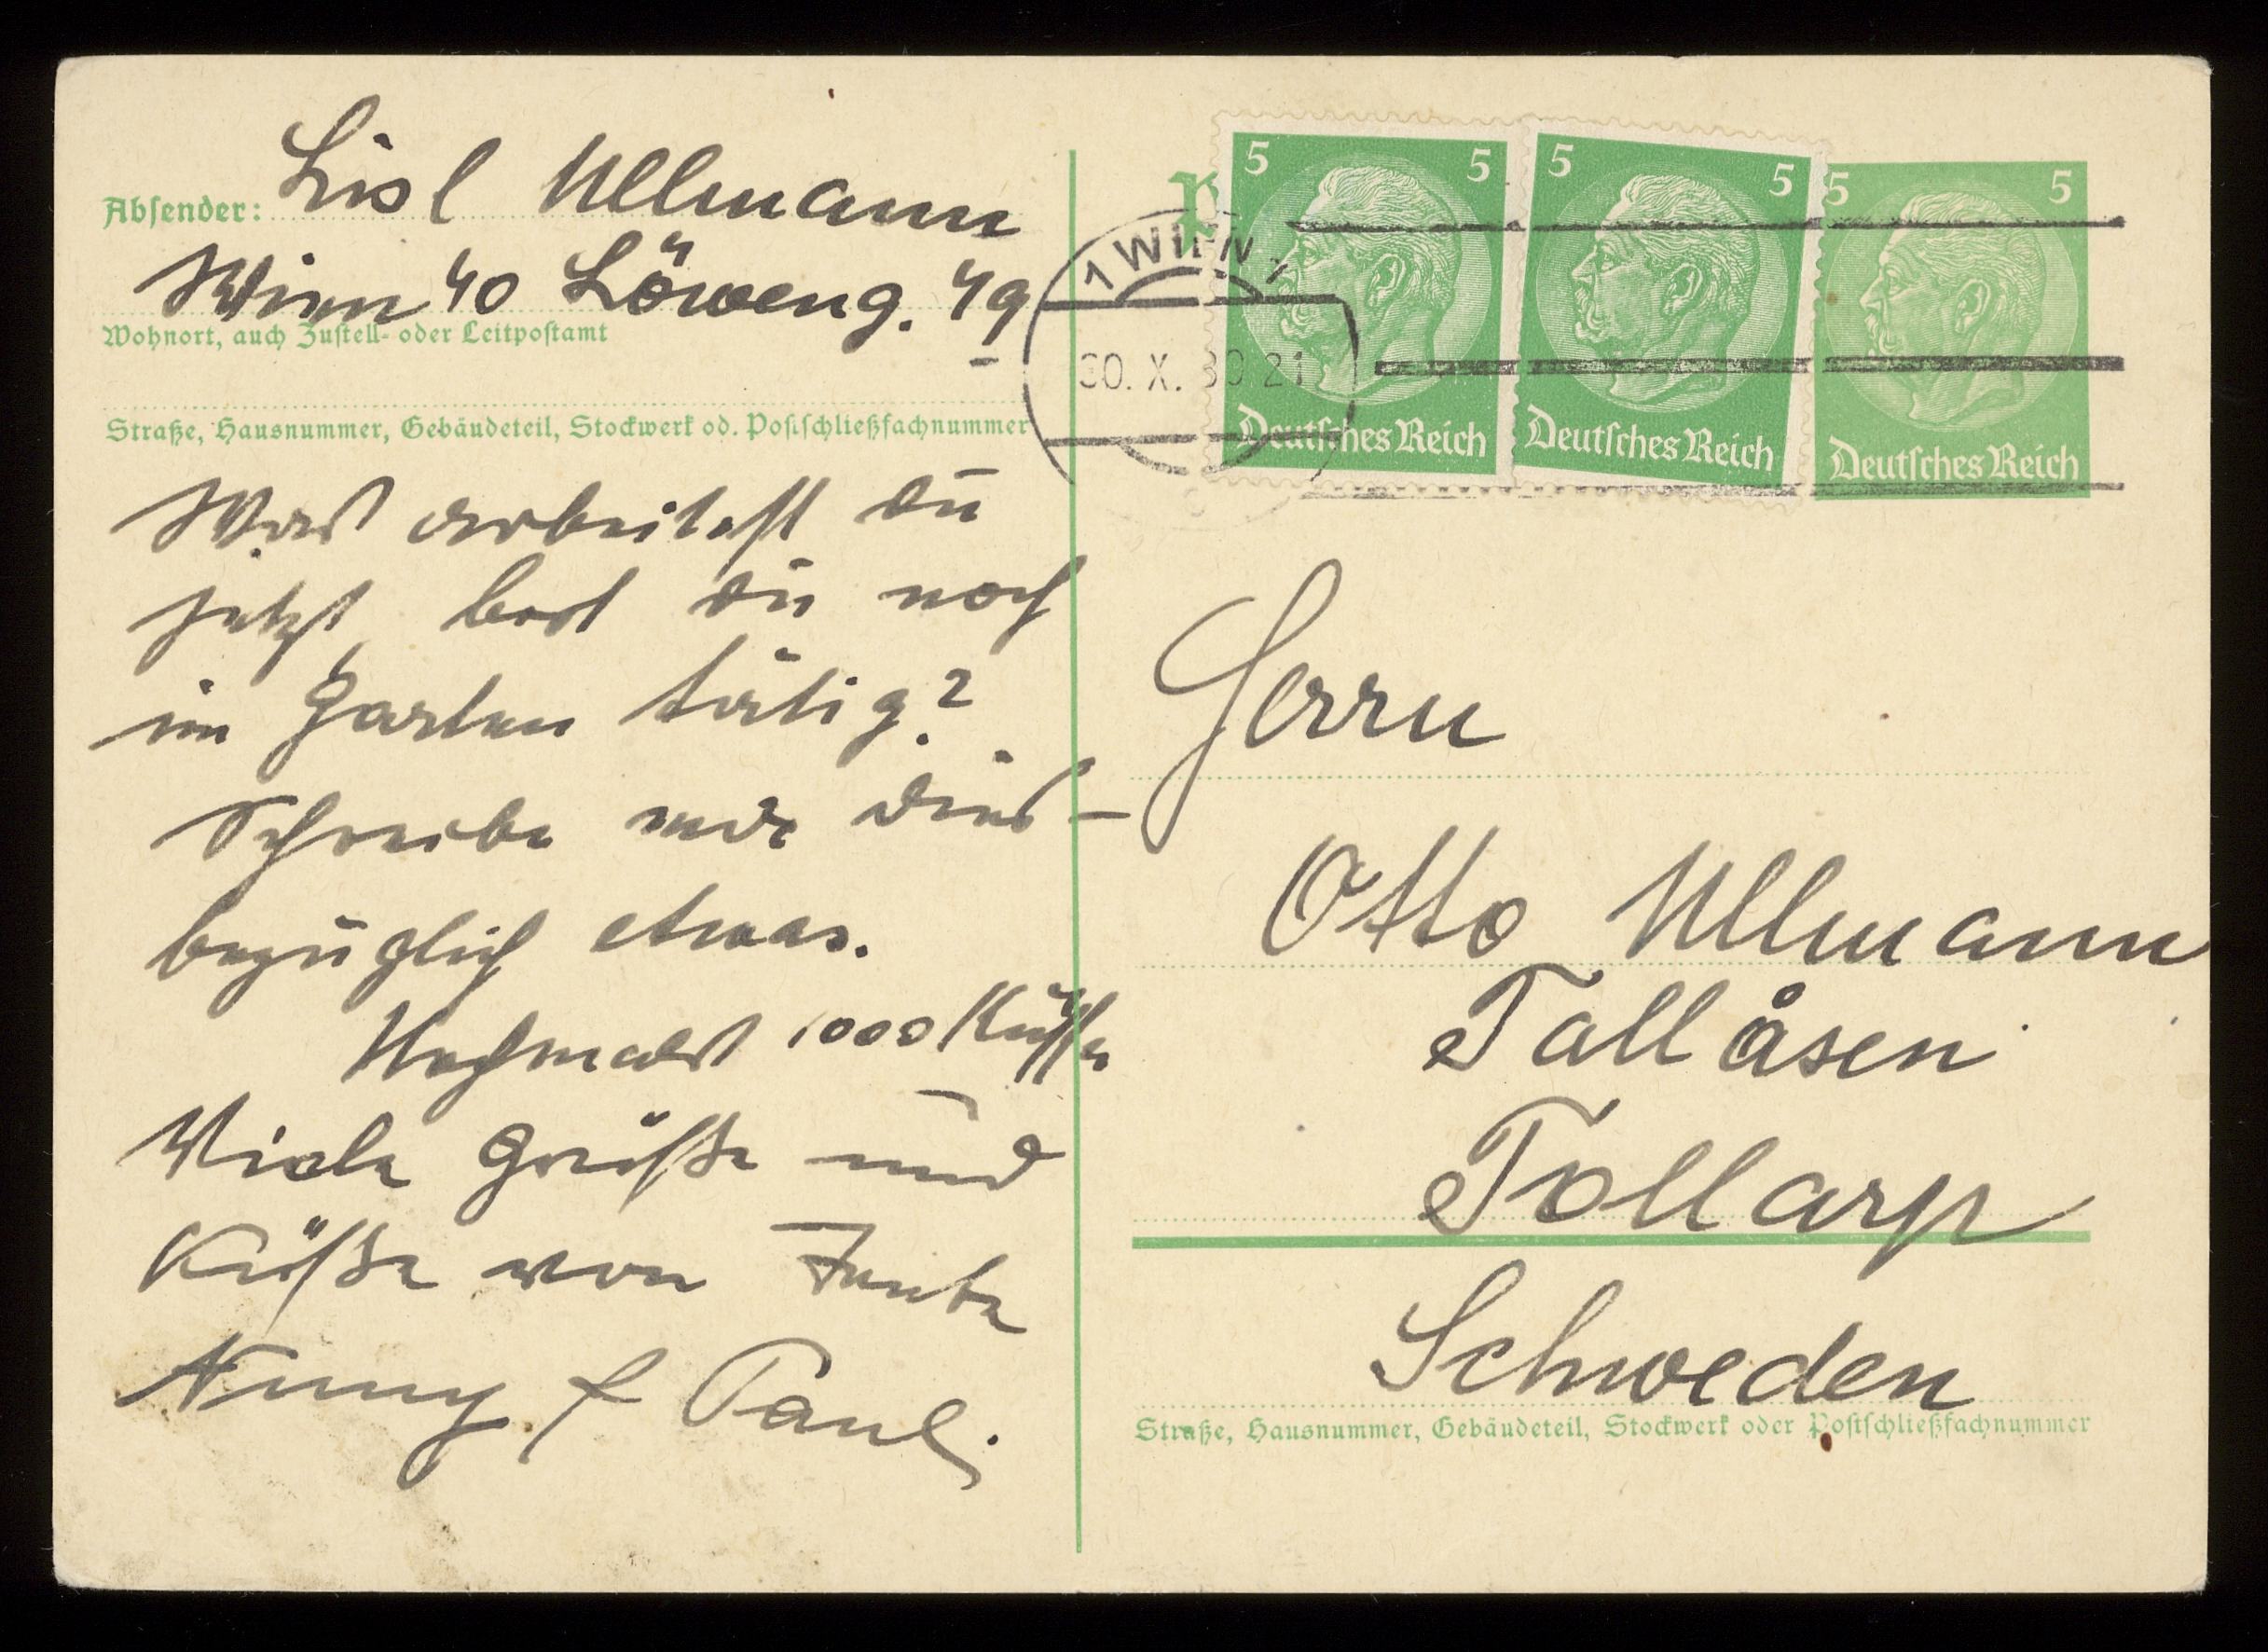 Absender: Lisl Ullmann
Wien 40 Löweng. 49
Wohnort, auch Zustell- oder Leitpostamt
Straße, Hausnummer, Gebäudeteil, Stockwerk od. Postschließfachnummer
Was arbeitest du
jetzt, bist du noch
im Garten tätig?
Schreibe mir dies-
bezüglich etwas.
Nochmals 1000 Küsse
Viele Grüße und
Küße von Tante
Nuny + Paul.
1 WIEN 1
30. X. 39 21
5 5 5 5 5 5
Deutsches Reich Deutsches Reich Deutsches Reich
Herrn
Otto Ullmann
Tallåsen
Tollarp
Schweden
Straße, Hausnummer, Gebäudeteil, Stockwerk oder Postschließfachnummer